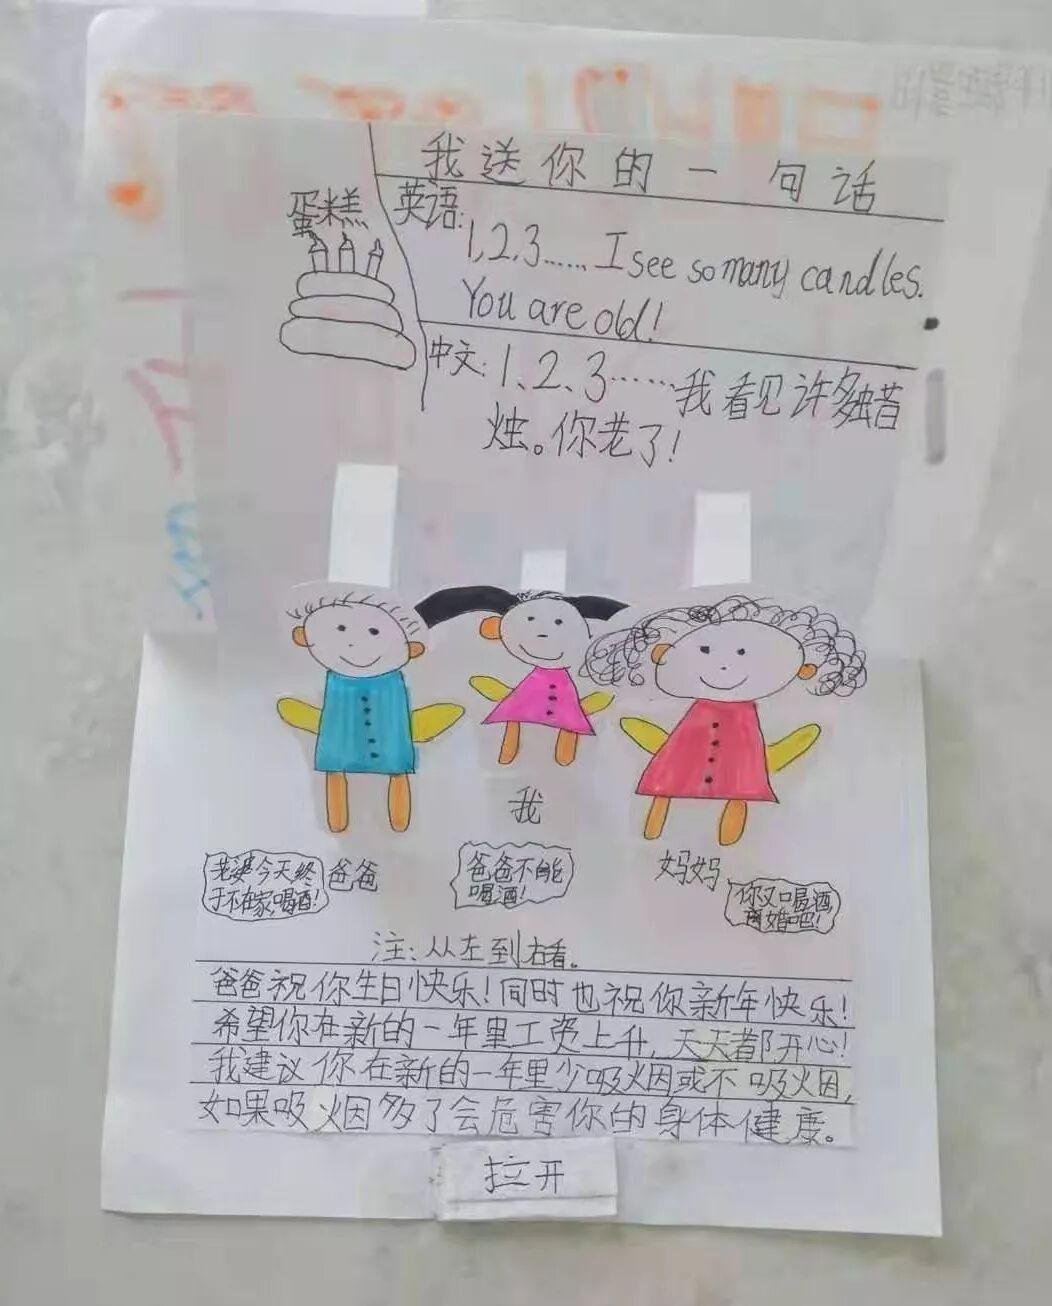 我送你的一句话
蛋糕
英语:
1,2,3...... I see so many candles.
You are old!
中文:1、2、3……我看见许多蜡
烛。你老了!
我
爸爸
老婆今天终
于不在家,喝酒!
爸爸不能
喝酒!
妈妈
你又喝酒,
离婚吧!
注:从左到右看。
爸爸祝你生日快乐!同时也祝你新年快乐!
希望你在新的一年里工资上升,天天都开心!
我建议你在新的一年里少吸烟或不吸烟,
如果吸烟多了会危害你的身体健康。
拉开